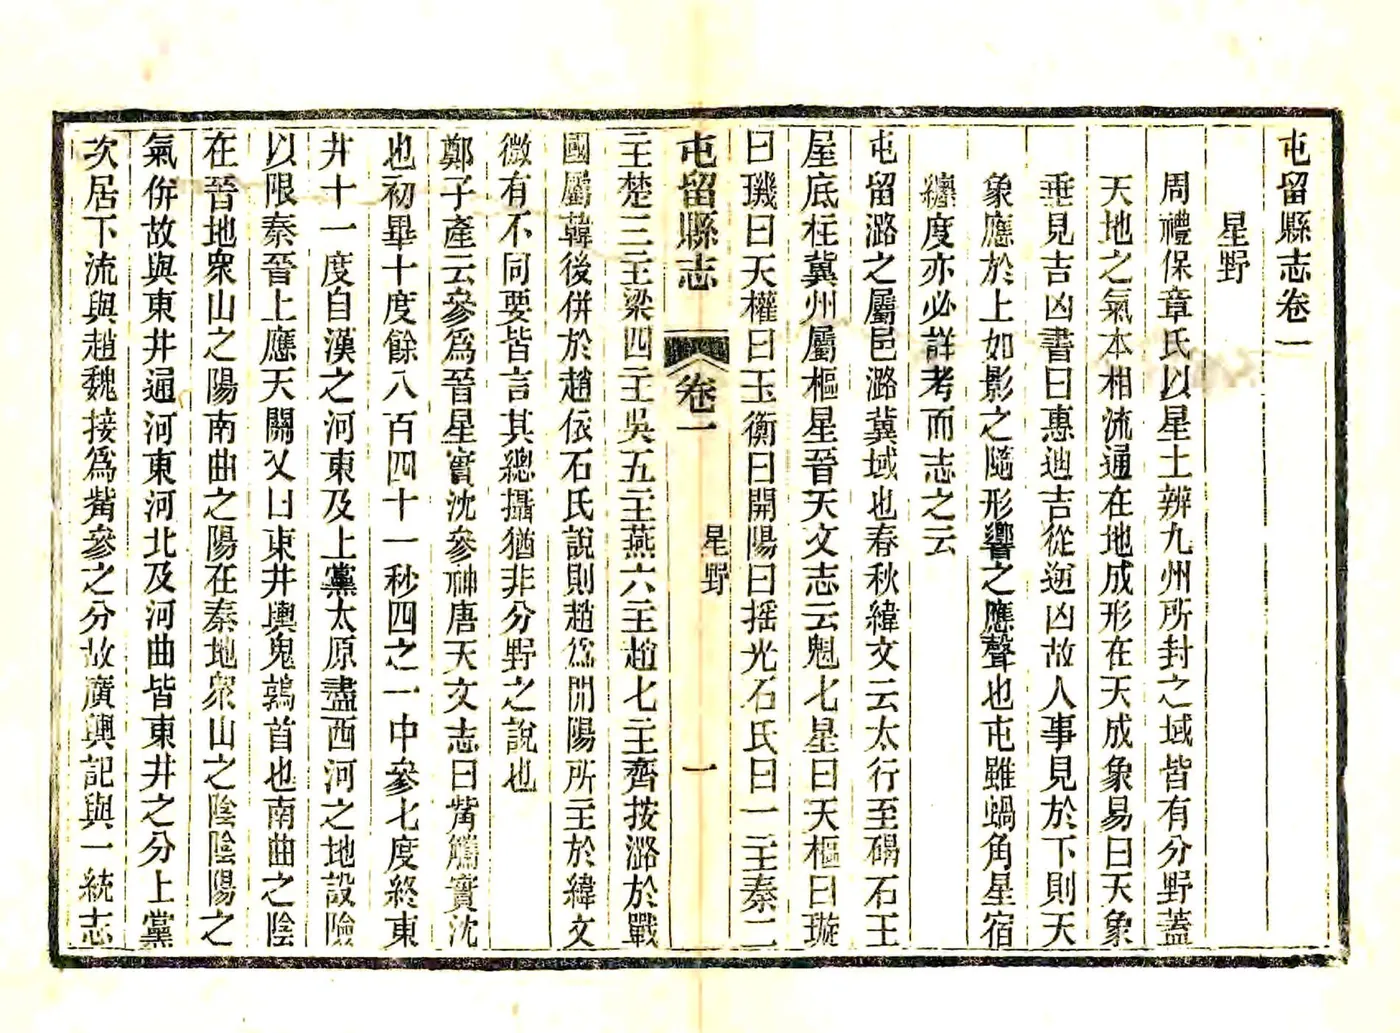 屯留縣志卷一
星野
周禮保章氏以星土辨九州所封之域皆有分野蓋
天地之氣本相流通在地成形在天成象易曰天象
垂見吉凶書曰惠迪吉從逆凶故人事見於下則天
象應於上如影之隨形響之應聲也屯雖蝸角星宿
纏度亦必詳考而志之云
屯留潞之屬邑潞冀域也春秋緯文云太行至碣石王
屋底柱冀州屬樞星晉天文志云魁七星曰天樞曰璇
曰璣曰天權曰玉衡曰開陽曰摇光石氏曰一主秦二
屯留縣志
卷一
星野
一
二主楚三主梁四主吳五主燕六主趙七主齊按潞於戰
國屬韓後併於趙依石氏說則趙爲開陽所主於緯文
微有不同要皆言其總攝猶非分野之說也
鄭子產云參爲晉星實沈參神唐天文志曰觜觿實沈
也初畢十度餘八百四十一秒四之一中參七度終東
井十一度自漢之河東及上黨太原盡西河之地設險
以限秦晉上應天關又曰東井輿鬼鶉首也南曲之陰
在晉地衆山之陽南曲之陽在秦地衆山之陰陰陽之
氣併故與東井通河東河北及河曲皆東井之分上黨
次居下流與趙魏接爲觜參之分故廣輿記與一統志